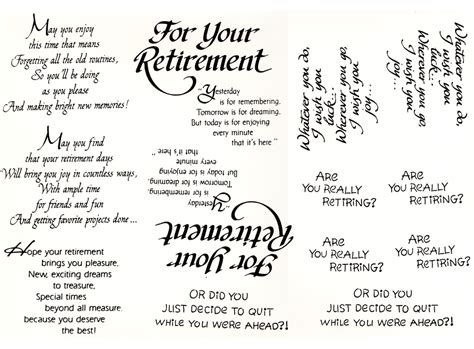 May you enjoy
this time that means
Forgetting all the old routines,
So you'll be doing
as you please
And making bright new memories!
May you find
that your retirement days
Will bring you joy in countless ways,
With ample time
for friends and fun
And getting favorite projects done...
Hope your retirement
brings you pleasure,
New, exciting dreams
to treasure,
Special times
beyond all measure.
because you deserve
the best!
For Your
Retirement
"Yesterday
is for remembering.
Tomorrow is for dreaming.
But today is for enjoying
every minute
that it's here"
"Yesterday
is for remembering.
Tomorrow is for dreaming.
But today is for enjoying
every minute
that it's here"
For Your
Retirement
Whatever you do,
I wish you
luck...
Wherever you go,
I wish you
joy...
Whatever you do,
I wish you
luck...
Wherever you go,
I wish you
joy...
ARE
YOU REALLY
RETIRING?
ARE
YOU REALLY
RETIRING?
ARE
YOU REALLY
RETIRING?
ARE
YOU REALLY
RETIRING?
OR DID YOU
JUST DECIDE TO QUIT
WHILE YOU WERE AHEAD?!
OR DID YOU
JUST DECIDE TO QUIT
WHILE YOU WERE AHEAD?!